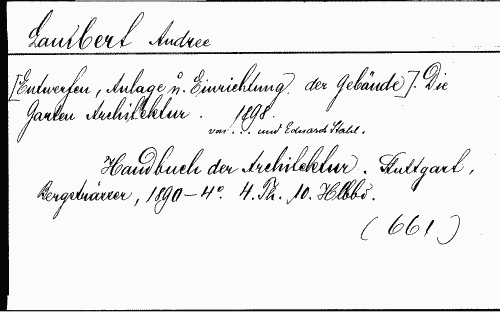 Lambert Andree
[Entwerfen, Anlage u. Einrichtung der Gebäude]. Die
Garten Architektur. 1898.
von ... und Eduard Stahl.
Handbuch der Architektur. Stuttgart,
Bergsträsser, 1890-4°. 4. Th. 10. Hlbbd.
(661)